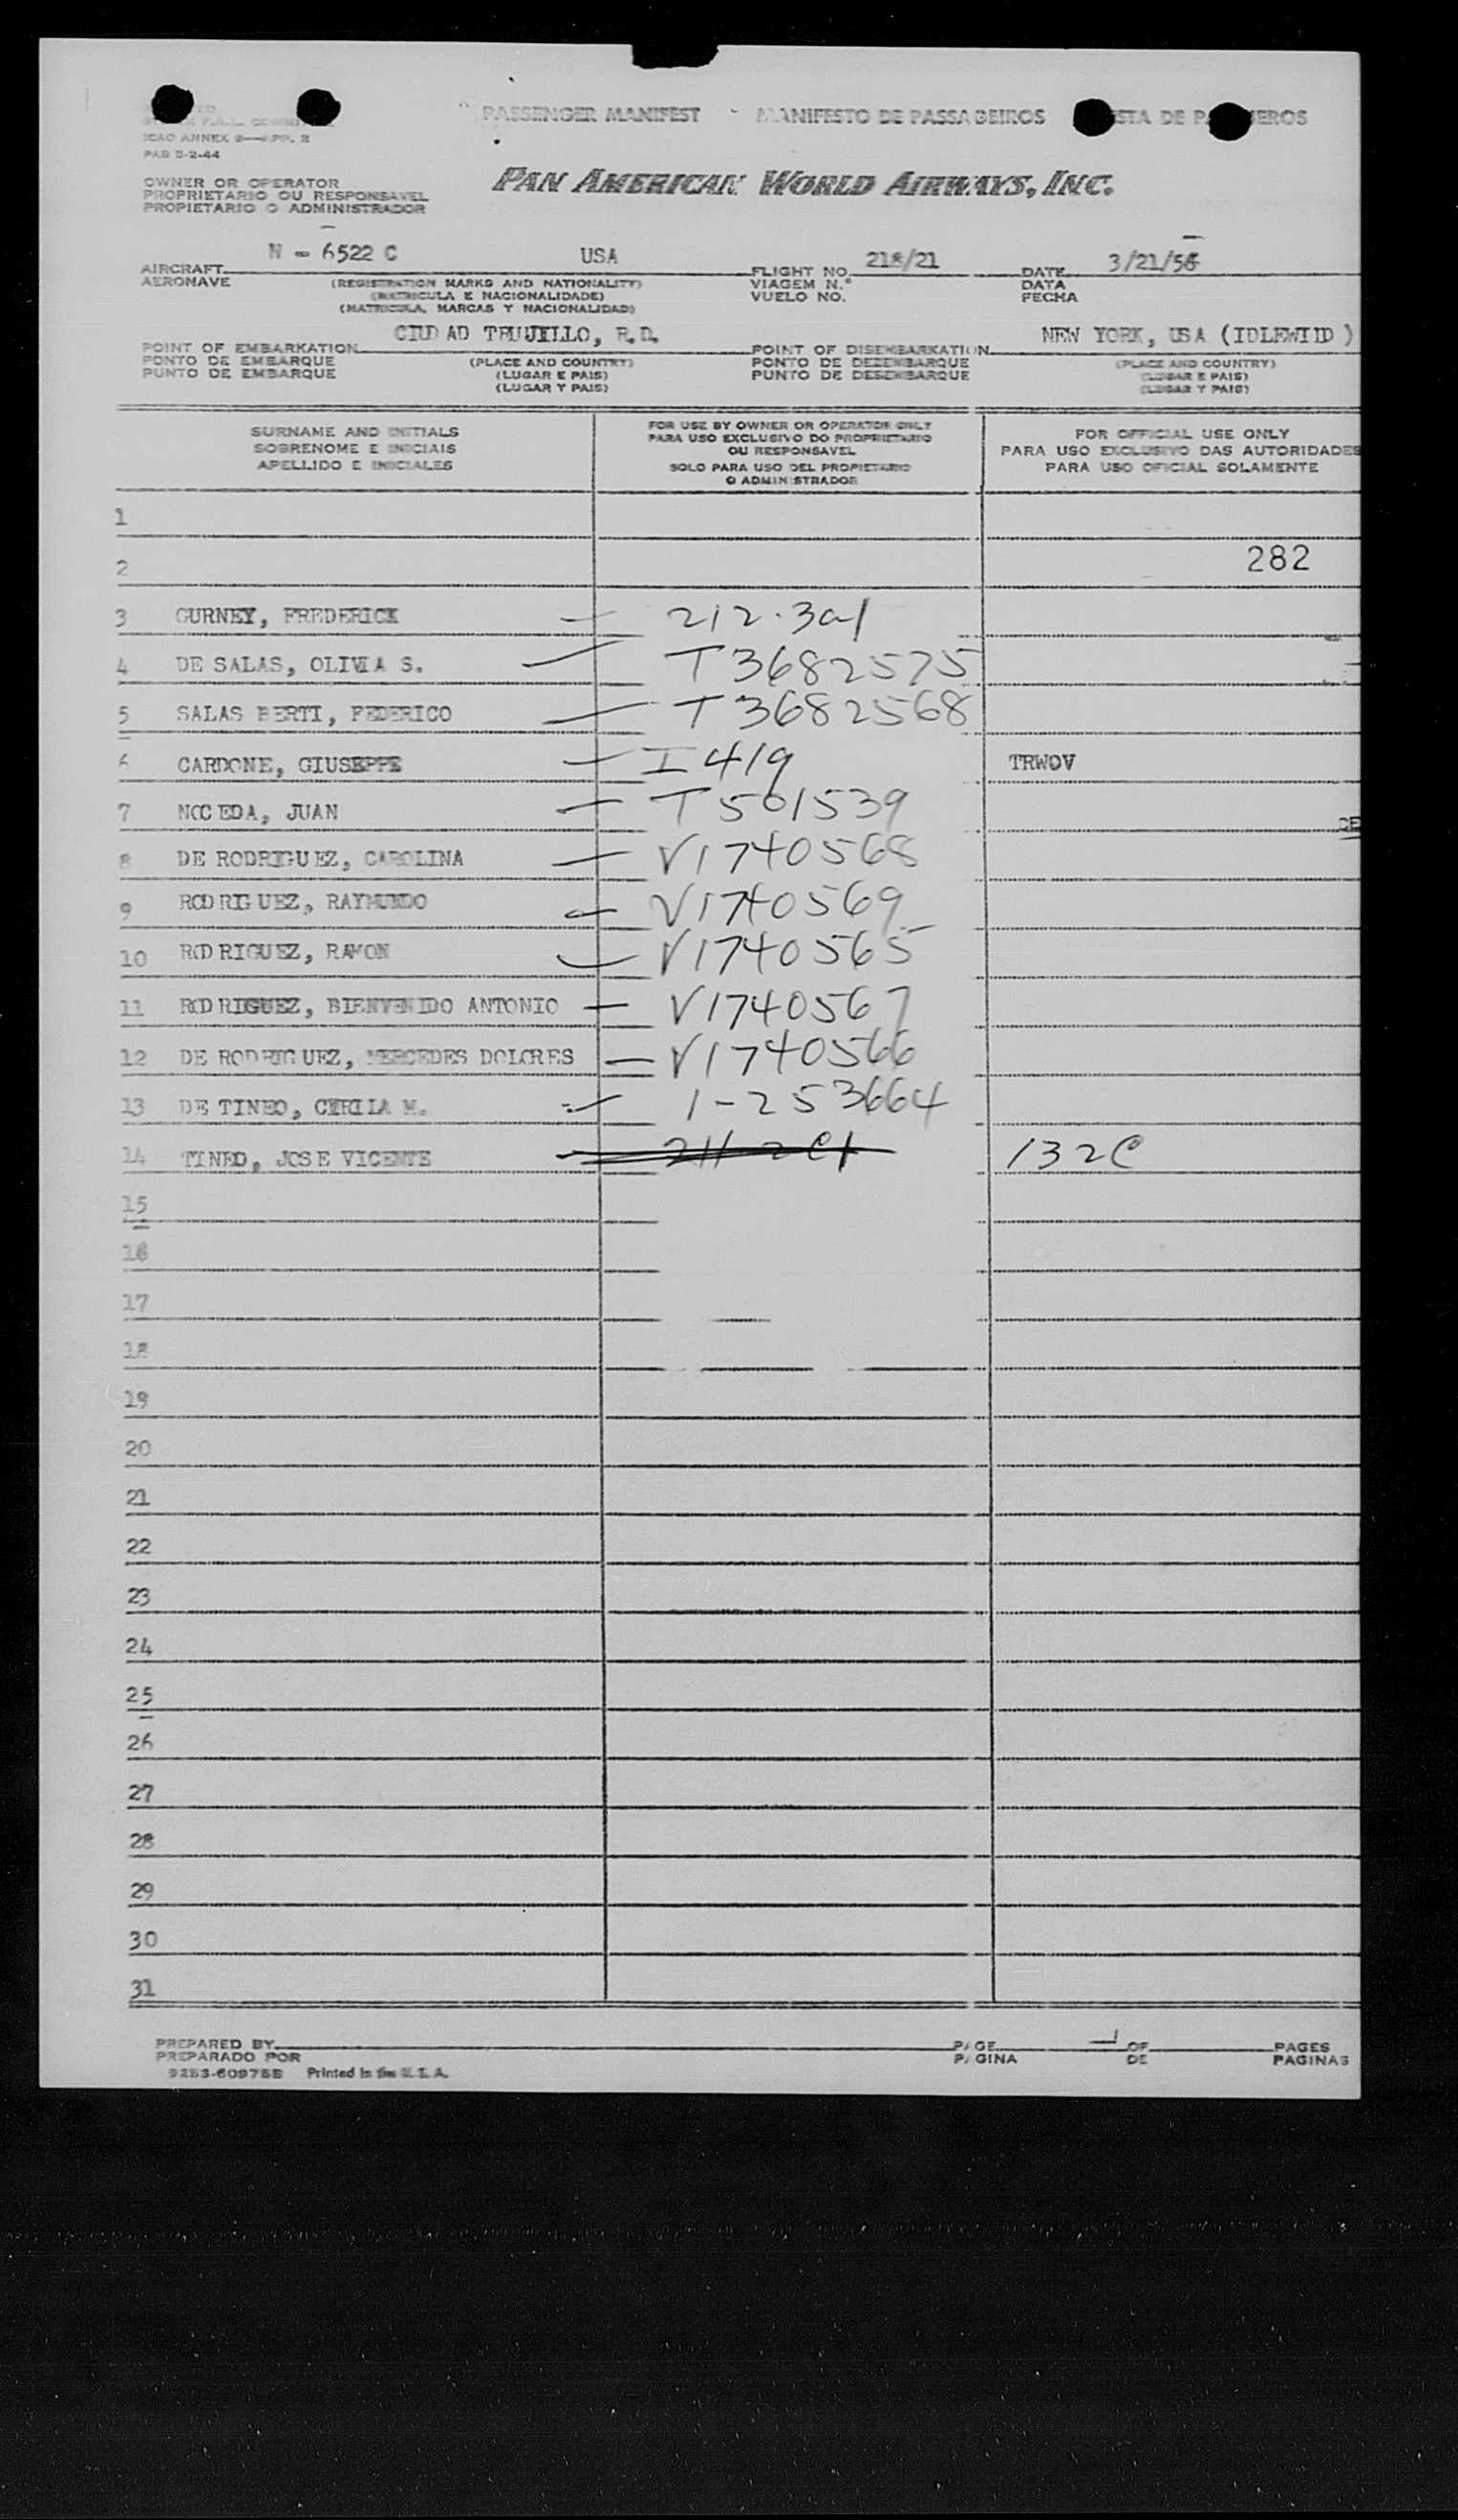 PASSENGER MANIFEST - MANIFESTO DE PASSAGEIROS
ICAO ANNEX 9—APP. 2
PAB 5-2-44
OWNER OR OPERATOR
PROPRIETARIO OU RESPONSAVEL
PROPIETARIO O ADMINISTRADOR
PAN AMERICAN WORLD AIRWAYS, INC.
AIRCRAFT N - 6522 C USA FLIGHT NO. 218/21 DATE 3/21/56
AERONAVE (REGISTRATION MARKS AND NATIONALITY) VIAGEM N.º DATA
(MATRICULA E NACIONALIDADE) VUELO NO. FECHA
(MATRICULA, MARCAS Y NACIONALIDAD)
POINT OF EMBARKATION CIUDAD TRUJILLO, R.D. POINT OF DISEMBARKATION NEW YORK, USA (IDLEWILD)
PONTO DE EMBARQUE (PLACE AND COUNTRY) PONTO DE DEZEMBARQUE (PLACE AND COUNTRY)
PUNTO DE EMBARQUE (LUGAR E PAIS) PUNTO DE DESEMBARQUE (LUGAR E PAIS)
(LUGAR Y PAIS) (LUGAR Y PAIS)
SURNAME AND INITIALS
SOBRENOME E INICIAIS
APELLIDO E INICIALES
FOR USE BY OWNER OR OPERATOR ONLY
PARA USO EXCLUSIVO DO PROPRIETARIO
OU RESPONSAVEL
SOLO PARA USO DEL PROPIETARIO
O ADMINISTRADOR
FOR OFFICIAL USE ONLY
PARA USO EXCLUSIVO DAS AUTORIDADES
PARA USO OFICIAL SOLAMENTE
1
2 282
3 GURNEY, FREDERICK 212.3a1
4 DE SALAS, OLIVIA S. T3682575
5 SALAS BERTI, FEDERICO T3682568
6 CARDONE, GIUSEPPE I419 TRWOV
7 NOCEDA, JUAN T501539
8 DE RODRIGUEZ, CAROLINA V1740568
9 RODRIGUEZ, RAYMUNDO V1740569
10 RODRIGUEZ, RAMON V1740565
11 RODRIGUEZ, BIENVENIDO ANTONIO V1740567
12 DE RODRIGUEZ, MERCEDES DOLORES V1740566
13 DE TINEO, CIRILA M. 1-253664
14 TINEO, JOSE VICENTE 132C
15
16
17
18
19
20
21
22
23
24
25
26
27
28
29
30
31
PREPARED BY PAGE 1 OF PAGES
PREPARADO POR PAGINA DE PAGINAS
Printed in the U.S.A.